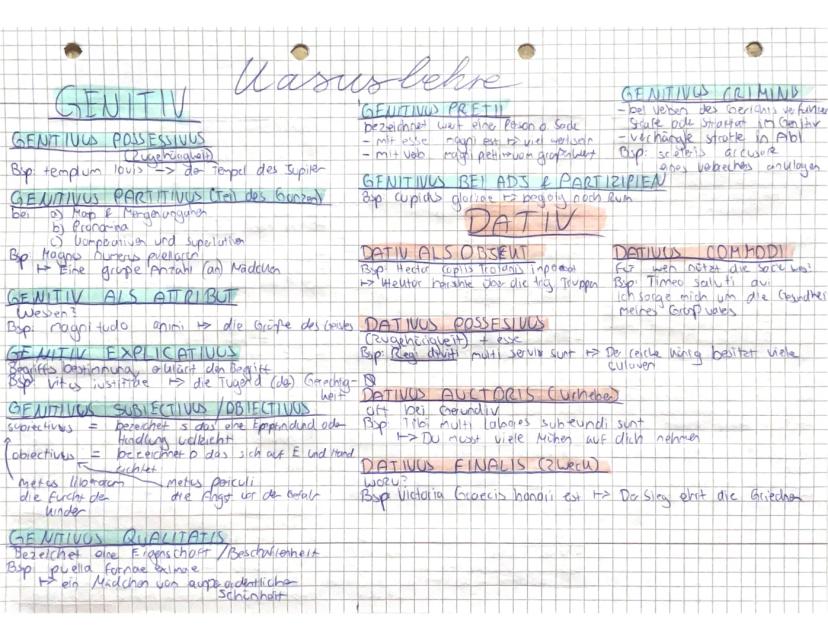 Kasuslehre
GENITIV
GENITIVUS POSSESSIVUS
(Zugehörigkeit)
Bsp: templum Iovis -> der Tempel des Jupiter
GENITIVUS PARTITIVUS (Teil des Ganzen)
bei a)
b) Pronomina
c) Komparativen und Superlativen
Bsp: Magnus numerus puellarum
↳ Eine große Anzahl (an) Mädchen
GENITIV ALS ATTRIBUT
Wessen?
Bsp: magnitudo animi ↦ die Größe des Geistes
GENITIV EXPLICATIVUS
Begriffsbestimmung, erklärt den Begriff
Bsp vitus iustitiae ↦ die Tugend (der) Gerechtig-
keit
GENITIVUS SUBIECTIVUS / OBIECTIVUS
subiectivus = bezeichet S das eine Empfindung oder
Handlung
obiectivus = bezeichnet O das sich auf E und Hand
richtet
metus liberorum
die Furcht der
Kinder
metus periculi
die Angst vor der Gefahr
GENITIVUS QUALITATIS
Bezeichet eine Eigenschaft / Beschaffenheit
Bsp puella formae eximae
↳ ein Mädchen von außerordentlicher
Schönheit
GENITIVUS PRETII
bezeichnet wert eine Person o Sache
- mit esse magni est ↦ viel wert sein
- mit Verb magni
GENITIV BEI ADJ & PARTIZIPIEN
Bsp cupidus gloriae ↦ begierig nach Ruhm
GENITIVUS CRIMINIS
- bei Verben des Gerichtsverfahrens
Strafe oder Straftat im Genitiv
- verhängte Strafe in Abl
Bsp: sceleris accusare
eines Verbrechens anklagen
DATIV
DATIV ALS OBJEKT
Bsp: Hector copiis Troianis imperat
↦ Hektor herrschte über die troj Truppen
DATIVUS POSSESIVUS
(Zugehörigkeit) + esse
Bsp: Regi diviti multi servi sunt ↦ Der reiche König besitzt viele
Sklaven
DATIVUS AUCTORIS (Urheber)
oft bei Gerundiv
Bsp Tibi multi labores subeundi sunt
↦ Du musst viele Mühen auf dich nehmen
DATIVUS FINALIS (Zweck)
wozu?
Bsp Victoria Graecis honori est ↦ Der Sieg ehrt die Griechen
DATIVUS COMMODI
Für wen nützt die Sache was?
Bsp: Timeo saluti avi
Ich sorge mich um die Gesundheit
meines Großvaters